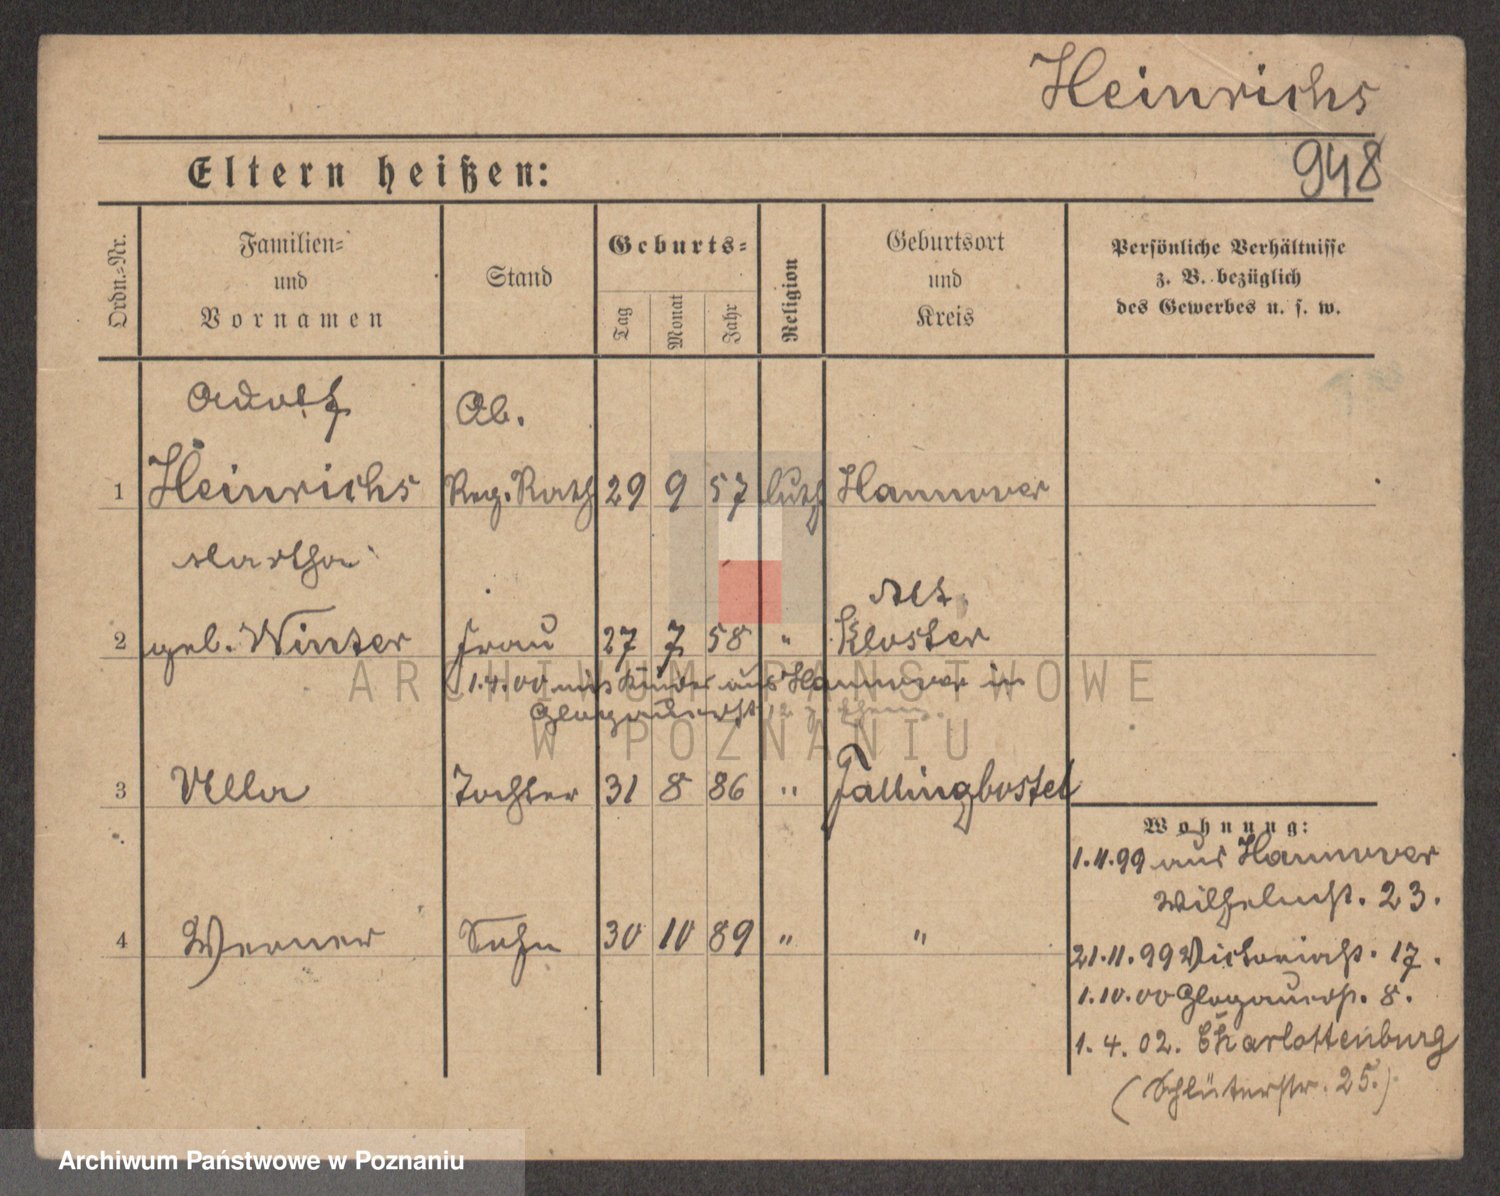 Heinrichs
948
Eltern heißen:
Ordn.=Nr.
Familien=
und
Vornamen
Stand
Geburts=
Tag
Monat
Jahr
Religion
Geburtsort
und
Kreis
Persönliche Verhältnisse
z. B. bezüglich
des Gewerbes u. s. w.
Adolf Ob.
1 Heinrichs Reg. Rath 29 9 57 luth Hannover
Martha Alt
2 geb. Winter Frau 27 7 58 " Kloster
1.4.00 mit Kinder aus Hannover in
Glogauerst
3 Ella Tochter 31 8 86 " Fallingbostel
4 Werner Sohn 30 10 89 " "
Wohnung:
1.11.99 aus Hannover
Wilhelmst. 23.
21.11.99 Victoriast. 17.
1.10.00 Glogauerst. 8.
1.4.02. Charlottenburg
(Schlüterstr. 25.)
ARCHIWUM PAŃSTWOWE
W POZNANIU
Archiwum Państwowe w Poznaniu